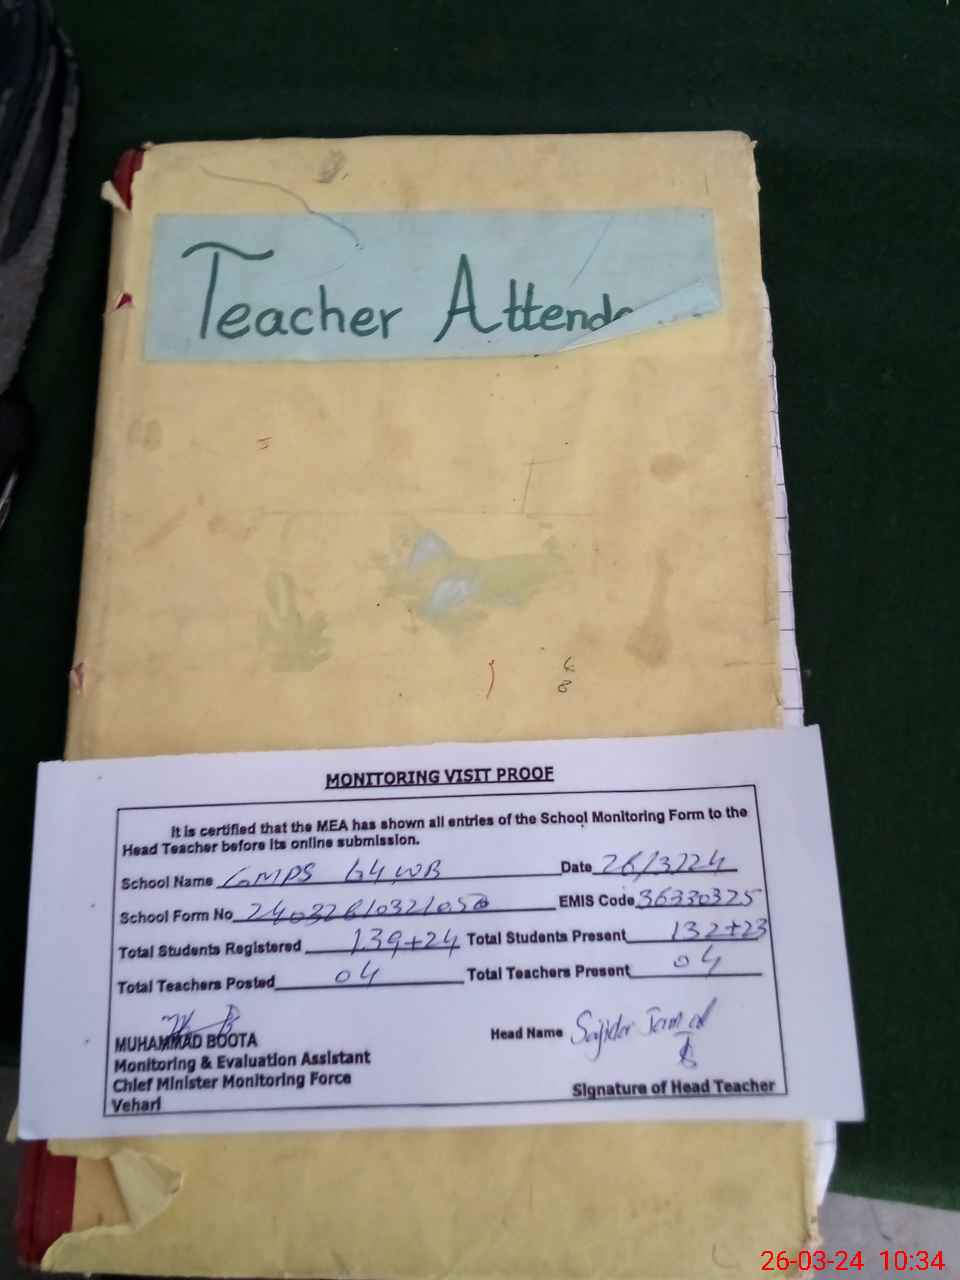 Teacher Attenda
6
8
MONITORING VISIT PROOF
It is certified that the MEA has shown all entries of the School Monitoring Form to the
Head Teacher before its online submission.
School Name GMPS 64 WB Date 26/3/24
School Form No EMIS Code 36330325
Total Students Registered 139+24 Total Students Present 132+23
Total Teachers Posted 04 Total Teachers Present 04
MUHAMMAD BOOTA Head Name
Monitoring & Evaluation Assistant
Chief Minister Monitoring Force
Signature of Head Teacher
Vehari
26-03-24 10:34